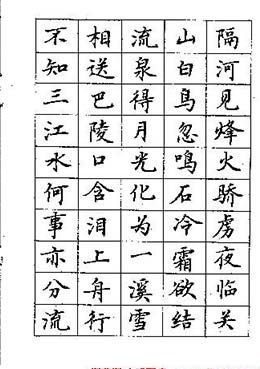 隔河见烽火骄虏夜临关
山白鸟忽鸣石冷霜欲结
流泉得月光化为一溪雪
相送巴陵口含泪上舟行
不知三江水何事亦分流